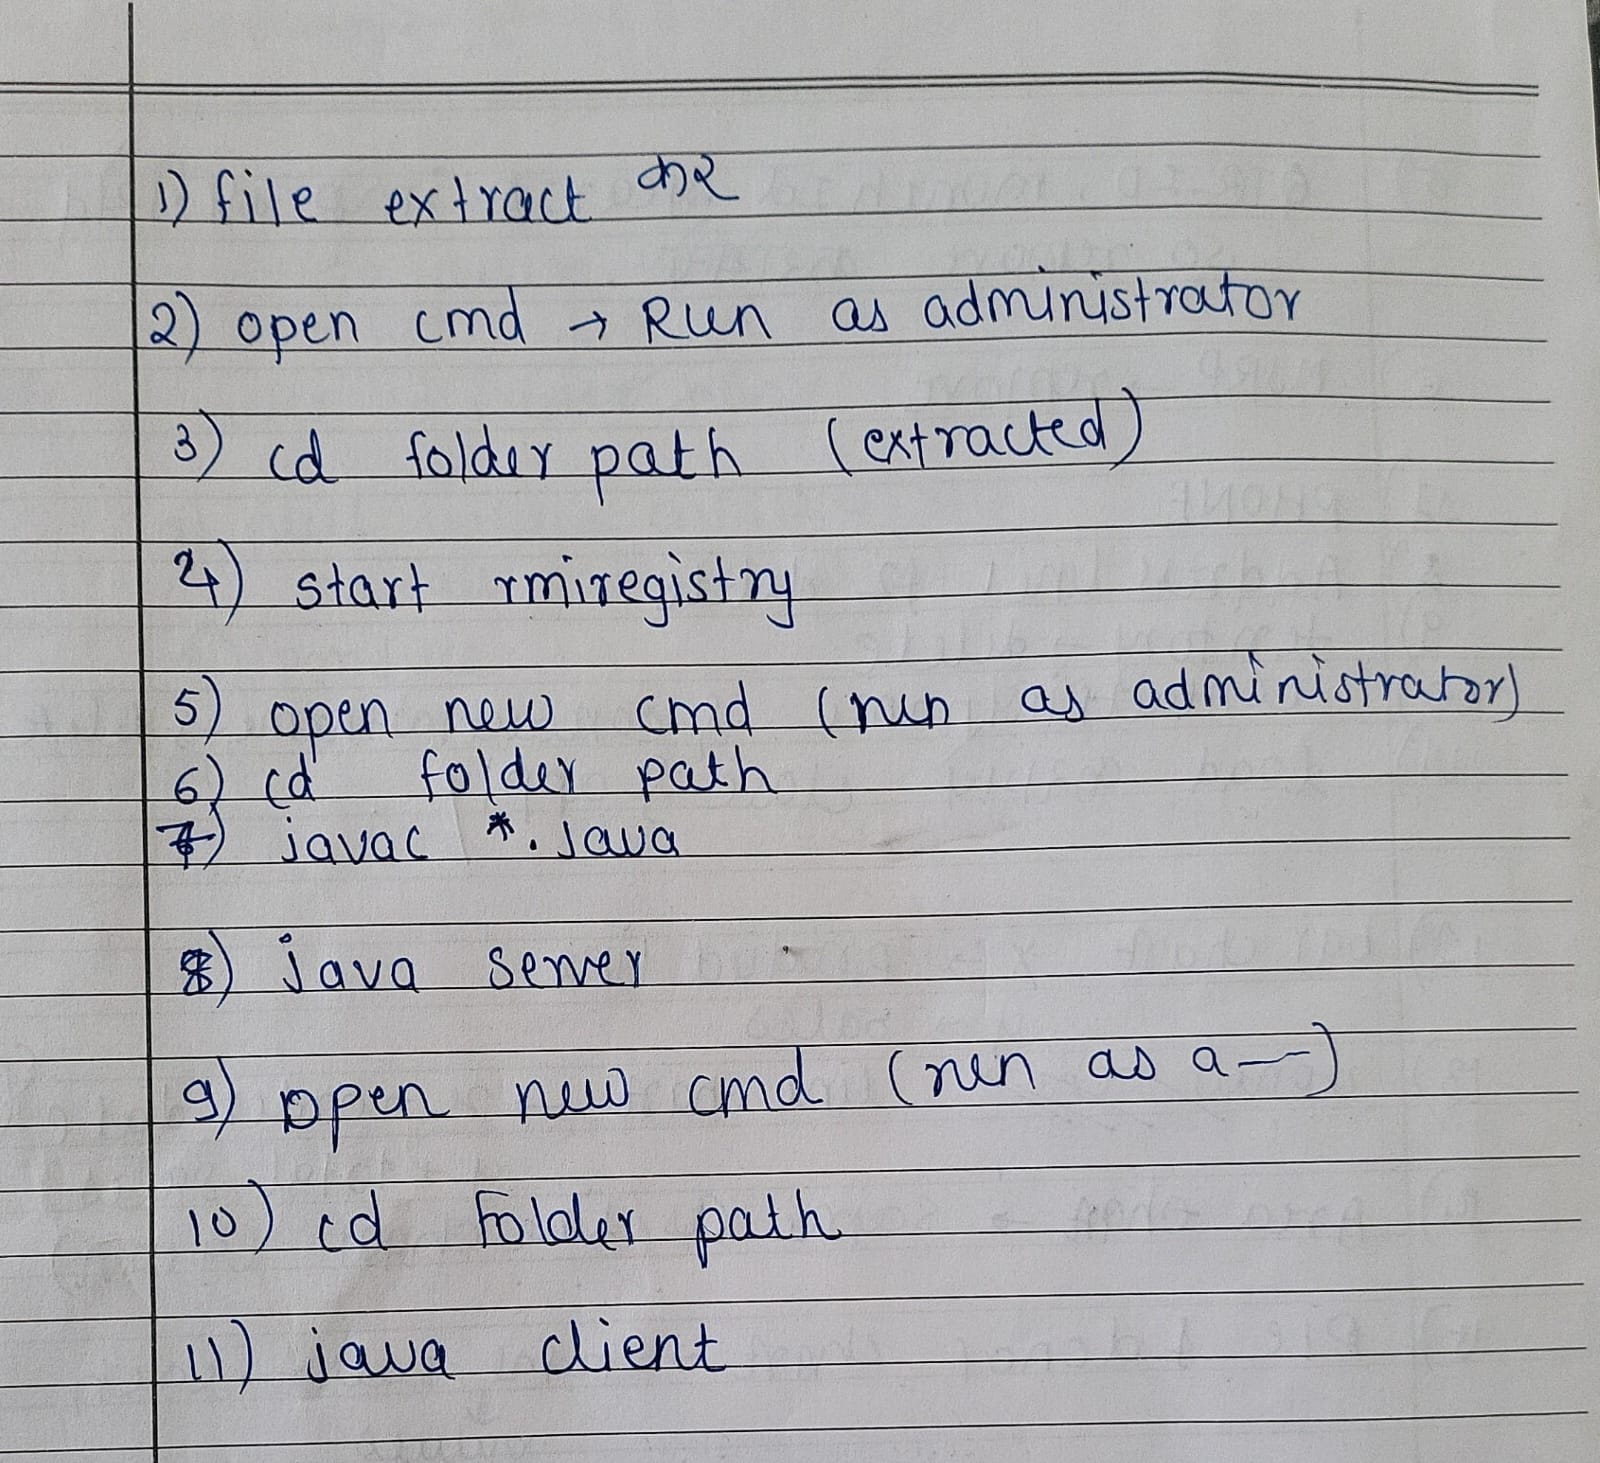 1) file extract कर
2) open cmd → Run as administrator
3) cd folder path (extracted)
4) start rmiregistry
5) open new cmd (run as administrator)
6) cd folder path
7) javac *.java
8) java server
9) open new cmd (run as a—)
10) cd Folder path
11) java client